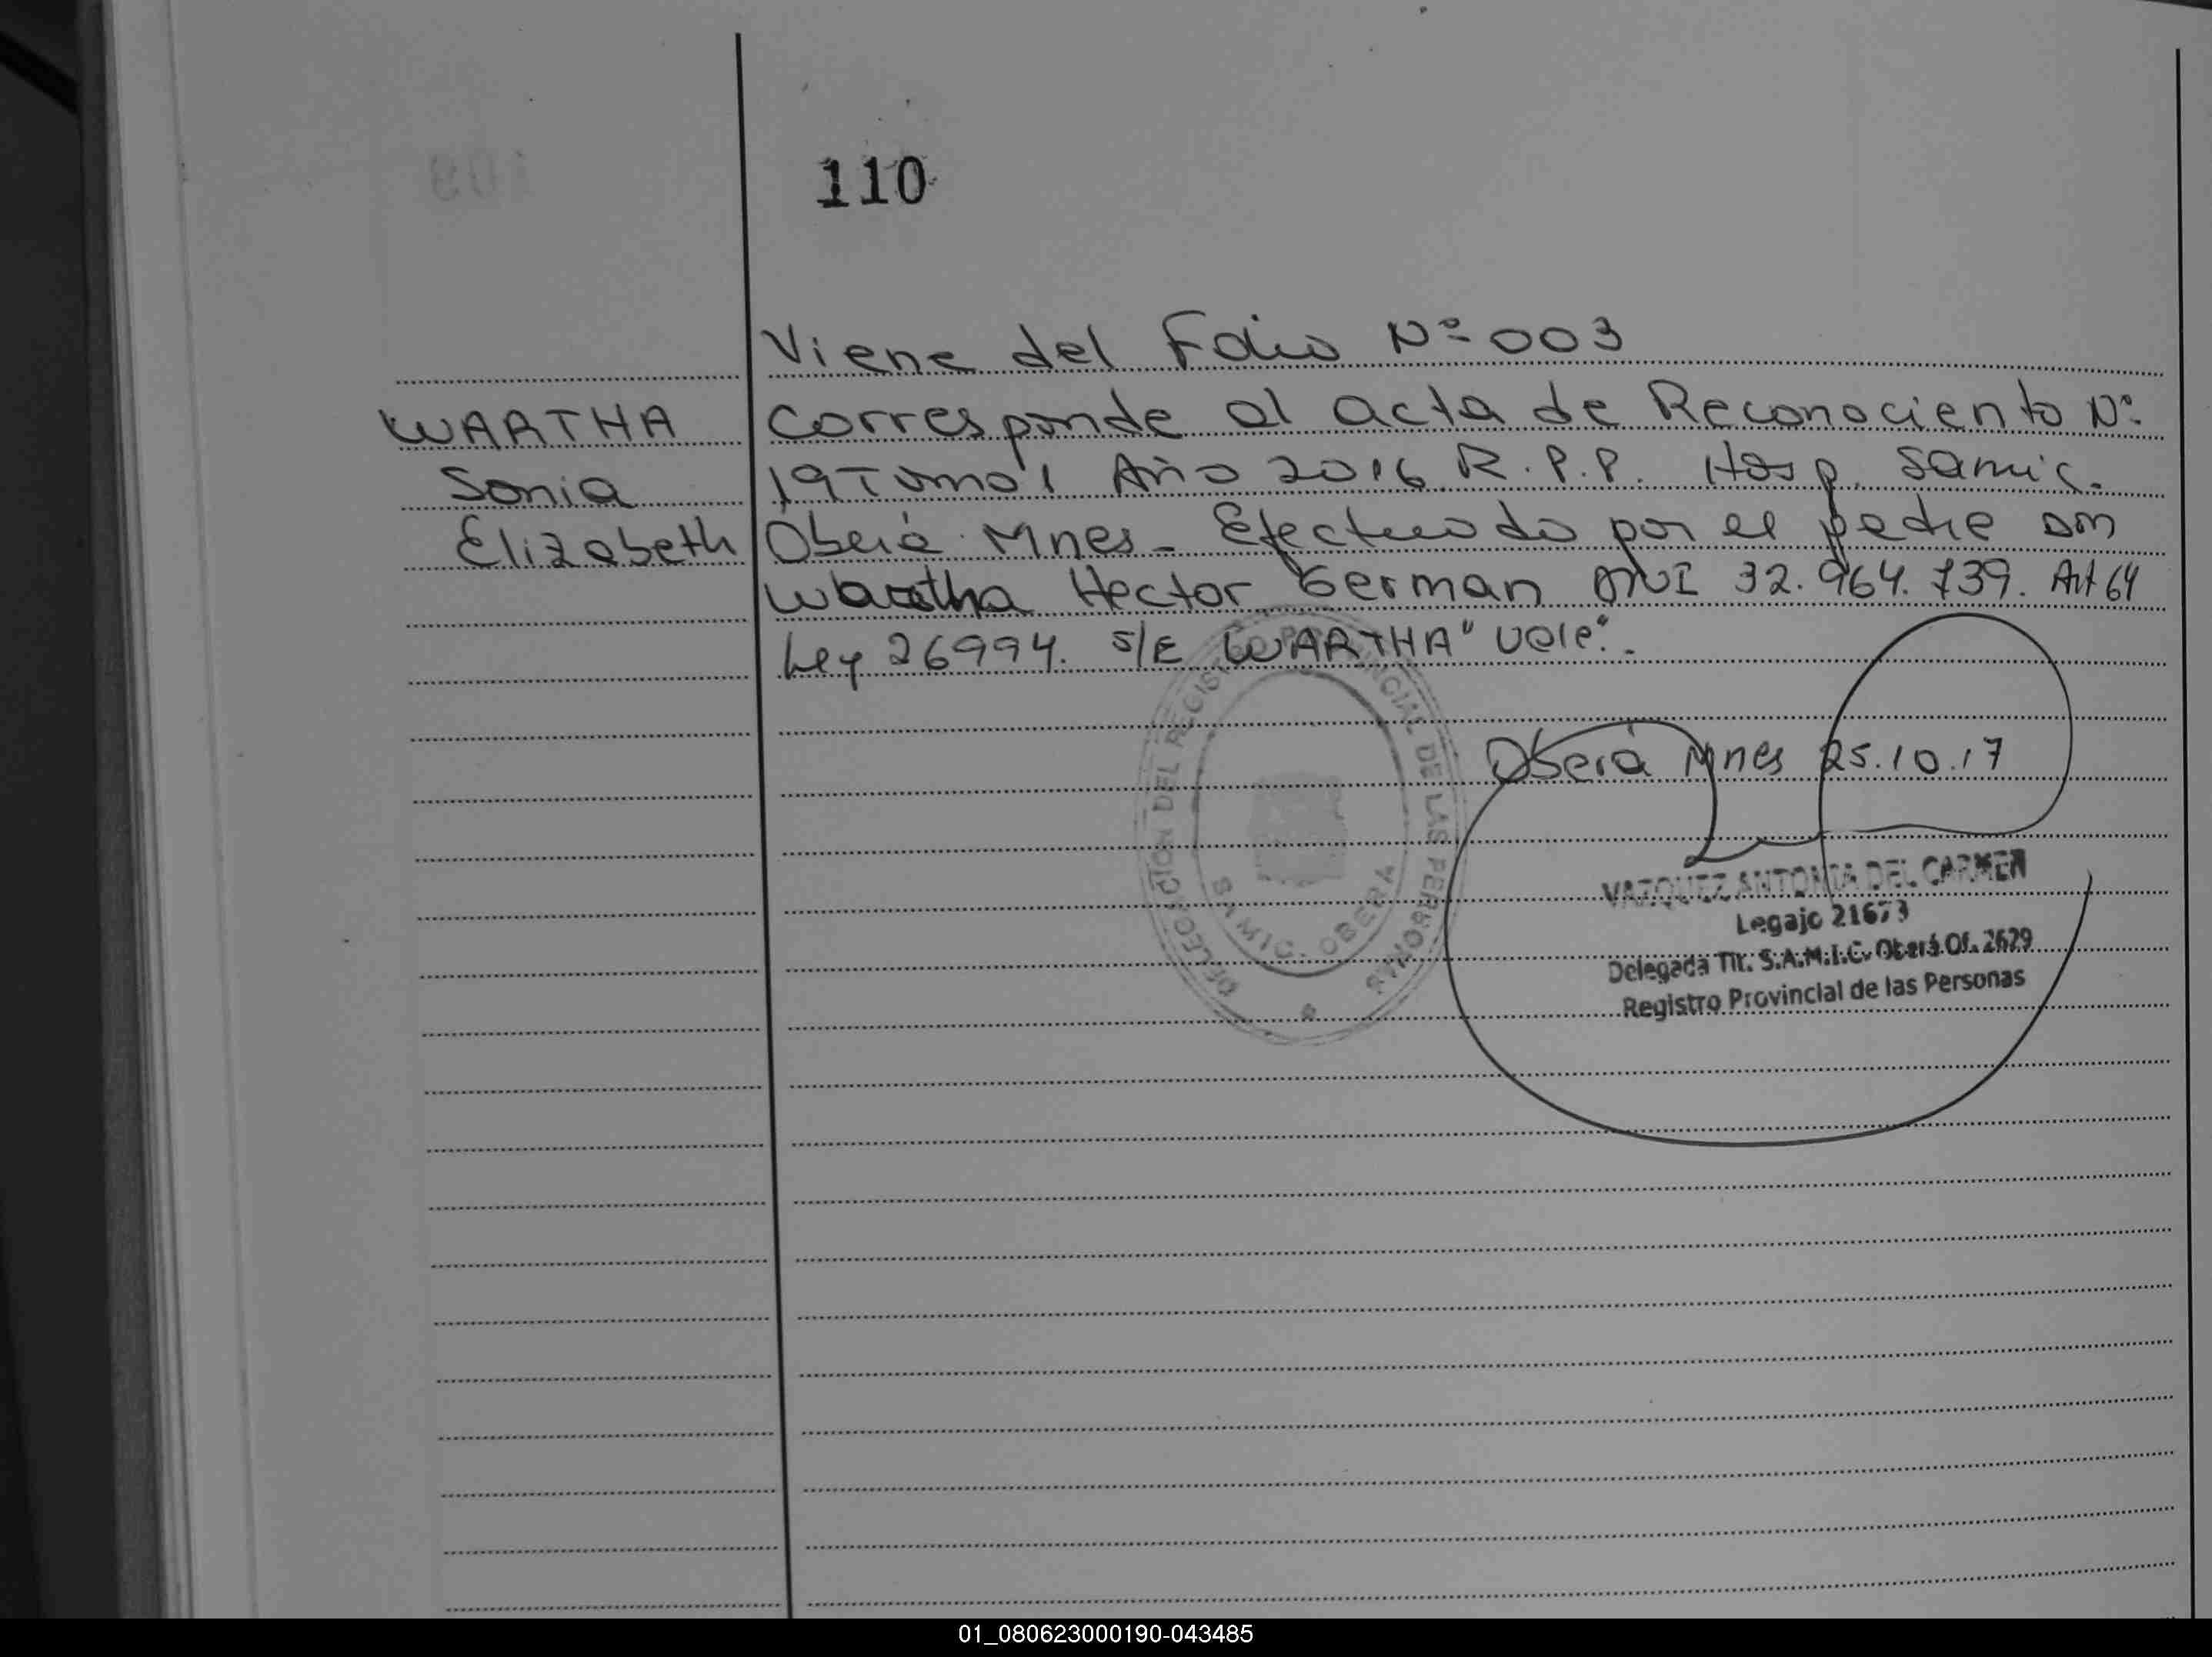 110
Viene del Folio Nº 003
WARTHA
Sonia
Elizabeth
Corresponde al acta de Reconociento Nº
19 Tomo 1 Año 2016 R.P.P. Hosp. Samic.
Oberá Mnes - Efectuado por el padre Don
Wartha Hector German DNI 32.964.739. Art 64
Ley 26994. S/E WARTHA" Vale".
Oberá Mnes 25.10.17
DELEGACIÓN DEL REGISTRO PROVINCIAL DE LAS PERSONAS
SAMIC. OBERÁ
VAZQUEZ ANTONIA DEL CARMEN
Legajo 21673
Delegada Tit. S.A.M.I.C. Oberá Of. 2629
Registro Provincial de las Personas
01_080623000190-043485